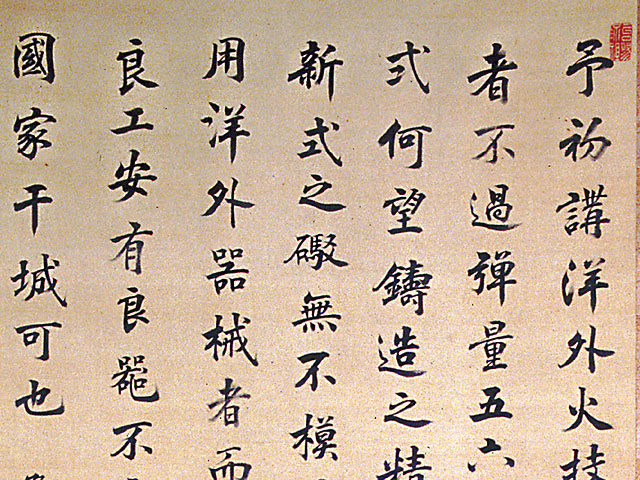 予初講洋外火技
者不過彈量五六
式何望鑄造之精
新式之礮無不模
用洋外器械者而
良工安有良器不
國家干城可也